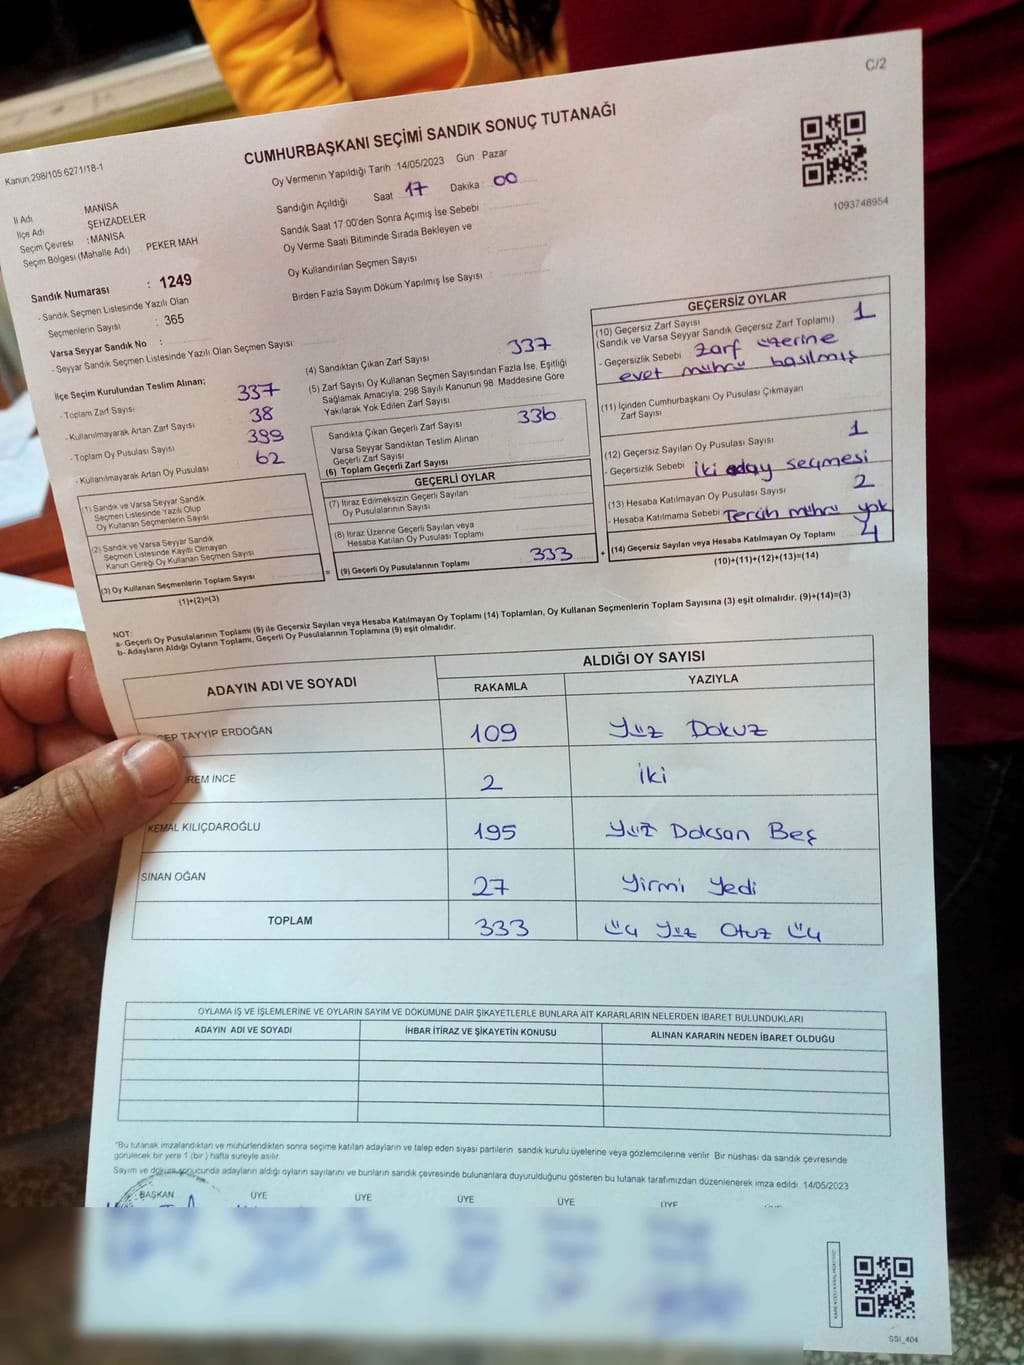 C/2
Kanun 298/105 6271/18-1
CUMHURBAŞKANI SEÇİMİ SANDIK SONUÇ TUTANAĞI
1093748954
İl Adı MANİSA
İlçe Adı ŞEHZADELER
Seçim Çevresi :MANİSA
Seçim Bölgesi (Mahalle Adı) PEKER MAH
Sandık Numarası : 1249
- Sandık Seçmen Listesinde Yazılı Olan
Seçmenlerin Sayısı : 365
Varsa Seyyar Sandık No :
- Seyyar Sandık Seçmen Listesinde Yazılı Olan Seçmen Sayısı :
Oy Vermenin Yapıldığı Tarih :14/05/2023 Gün : Pazar
Sandığın Açıldığı Saat 17 Dakika : 00
Sandık Saat 17:00'den Sonra Açımış İse Sebebi :
Oy Verme Saati Bitiminde Sırada Bekleyen ve
Oy Kullandırılan Seçmen Sayısı
Birden Fazla Sayım Döküm Yapılmış İse Sayısı :
İlçe Seçim Kurulundan Teslim Alınan;
- Toplam Zarf Sayısı 337
- Kullanılmayarak Artan Zarf Sayısı 38
- Toplam Oy Pusulası Sayısı 399
- Kullanılmayarak Artan Oy Pusulası 62
(1) Sandık ve Varsa Seyyar Sandık
Seçmen Listesinde Yazılı Olup
Oy Kullanan Seçmenlerin Sayısı
(2) Sandık ve Varsa Seyyar Sandık
Seçmen Listesinde Kayıtlı Olmayan
Kanun Gereği Oy Kullanan Seçmen Sayısı
(3) Oy Kullanan Seçmenlerin Toplam Sayısı
(1)+(2)=(3)
(4) Sandıktan Çıkan Zarf Sayısı 337
(5) Zarf Sayısı Oy Kullanan Seçmen Sayısından Fazla İse, Eşitliği
Sağlamak Amacıyla, 298 Sayılı Kanunun 98. Maddesine Göre
Yakılarak Yok Edilen Zarf Sayısı
Sandıkta Çıkan Geçerli Zarf Sayısı 336
Varsa Seyyar Sandıktan Teslim Alınan
Geçerli Zarf Sayısı
(6) Toplam Geçerli Zarf Sayısı
GEÇERLİ OYLAR
(7) İtiraz Edilmeksizin Geçerli Sayılan
Oy Pusulalarının Sayısı
(8) İtiraz Üzerine Geçerli Sayılan veya
Hesaba Katılan Oy Pusulası Toplamı
= (9) Geçerli Oy Pusulalarının Toplamı 333 +
GEÇERSİZ OYLAR
(10) Geçersiz Zarf Sayısı
(Sandık ve Varsa Seyyar Sandık Geçersiz Zarf Toplamı) 1
- Geçersizlik Sebebi Zarf üzerine
evet mührü basılmış
(11) İçinden Cumhurbaşkanı Oy Pusulası Çıkmayan
Zarf Sayısı
(12) Geçersiz Sayılan Oy Pusulası Sayısı 1
- Geçersizlik Sebebi iki aday seçmesi
(13) Hesaba Katılmayan Oy Pusulası Sayısı 2
- Hesaba Katılmama Sebebi Tercih mührü yok
(14) Geçersiz Sayılan veya Hesaba Katılmayan Oy Toplamı 4
(10)+(11)+(12)+(13)=(14)
NOT:
a- Geçerli Oy Pusulalarının Toplamı (9) ile Geçersiz Sayılan veya Hesaba Katılmayan Oy Toplamı (14) Toplamları, Oy Kullanan Seçmenlerin Toplam Sayısına (3) eşit olmalıdır. (9)+(14)=(3)
b- Adayların Aldığı Oyların Toplamı, Geçerli Oy Pusulalarının Toplamına (9) eşit olmalıdır.
ADAYIN ADI VE SOYADI ALDIĞI OY SAYISI
RAKAMLA YAZIYLA
CEP TAYYİP ERDOĞAN 109 Yüz Dokuz
REM İNCE 2 iki
KEMAL KILIÇDAROĞLU 195 Yüz Doksan Beş
SİNAN OĞAN 27 Yirmi Yedi
TOPLAM 333 Üç Yüz Otuz Üç
OYLAMA İŞ VE İŞLEMLERİNE VE OYLARIN SAYIM VE DÖKÜMÜNE DAİR ŞİKAYETLERLE BUNLARA AİT KARARLARIN NELERDEN İBARET BULUNDUKLARI
ADAYIN ADI VE SOYADI İHBAR İTİRAZ VE ŞİKAYETİN KONUSU ALINAN KARARIN NEDEN İBARET OLDUĞU
*Bu tutanak imzalandıktan ve mühürlendikten sonra seçime katılan adayların ve talep eden siyasi partilerin sandık kurulu üyelerine veya gözlemcilerine verilir. Bir nüshası da sandık çevresinde
görülecek bir yere 1 (bir ) hafta süreyle asılır.
Sayım ve döküm sonucunda adayların aldığı oyların sayılarını ve bunların sandık çevresinde bulunanlara duyurulduğunu gösteren bu tutanak tarafımızdan düzenlenerek imza edildi. 14/05/2023
BAŞKAN ÜYE ÜYE ÜYE ÜYE ÜYE
SSI_404